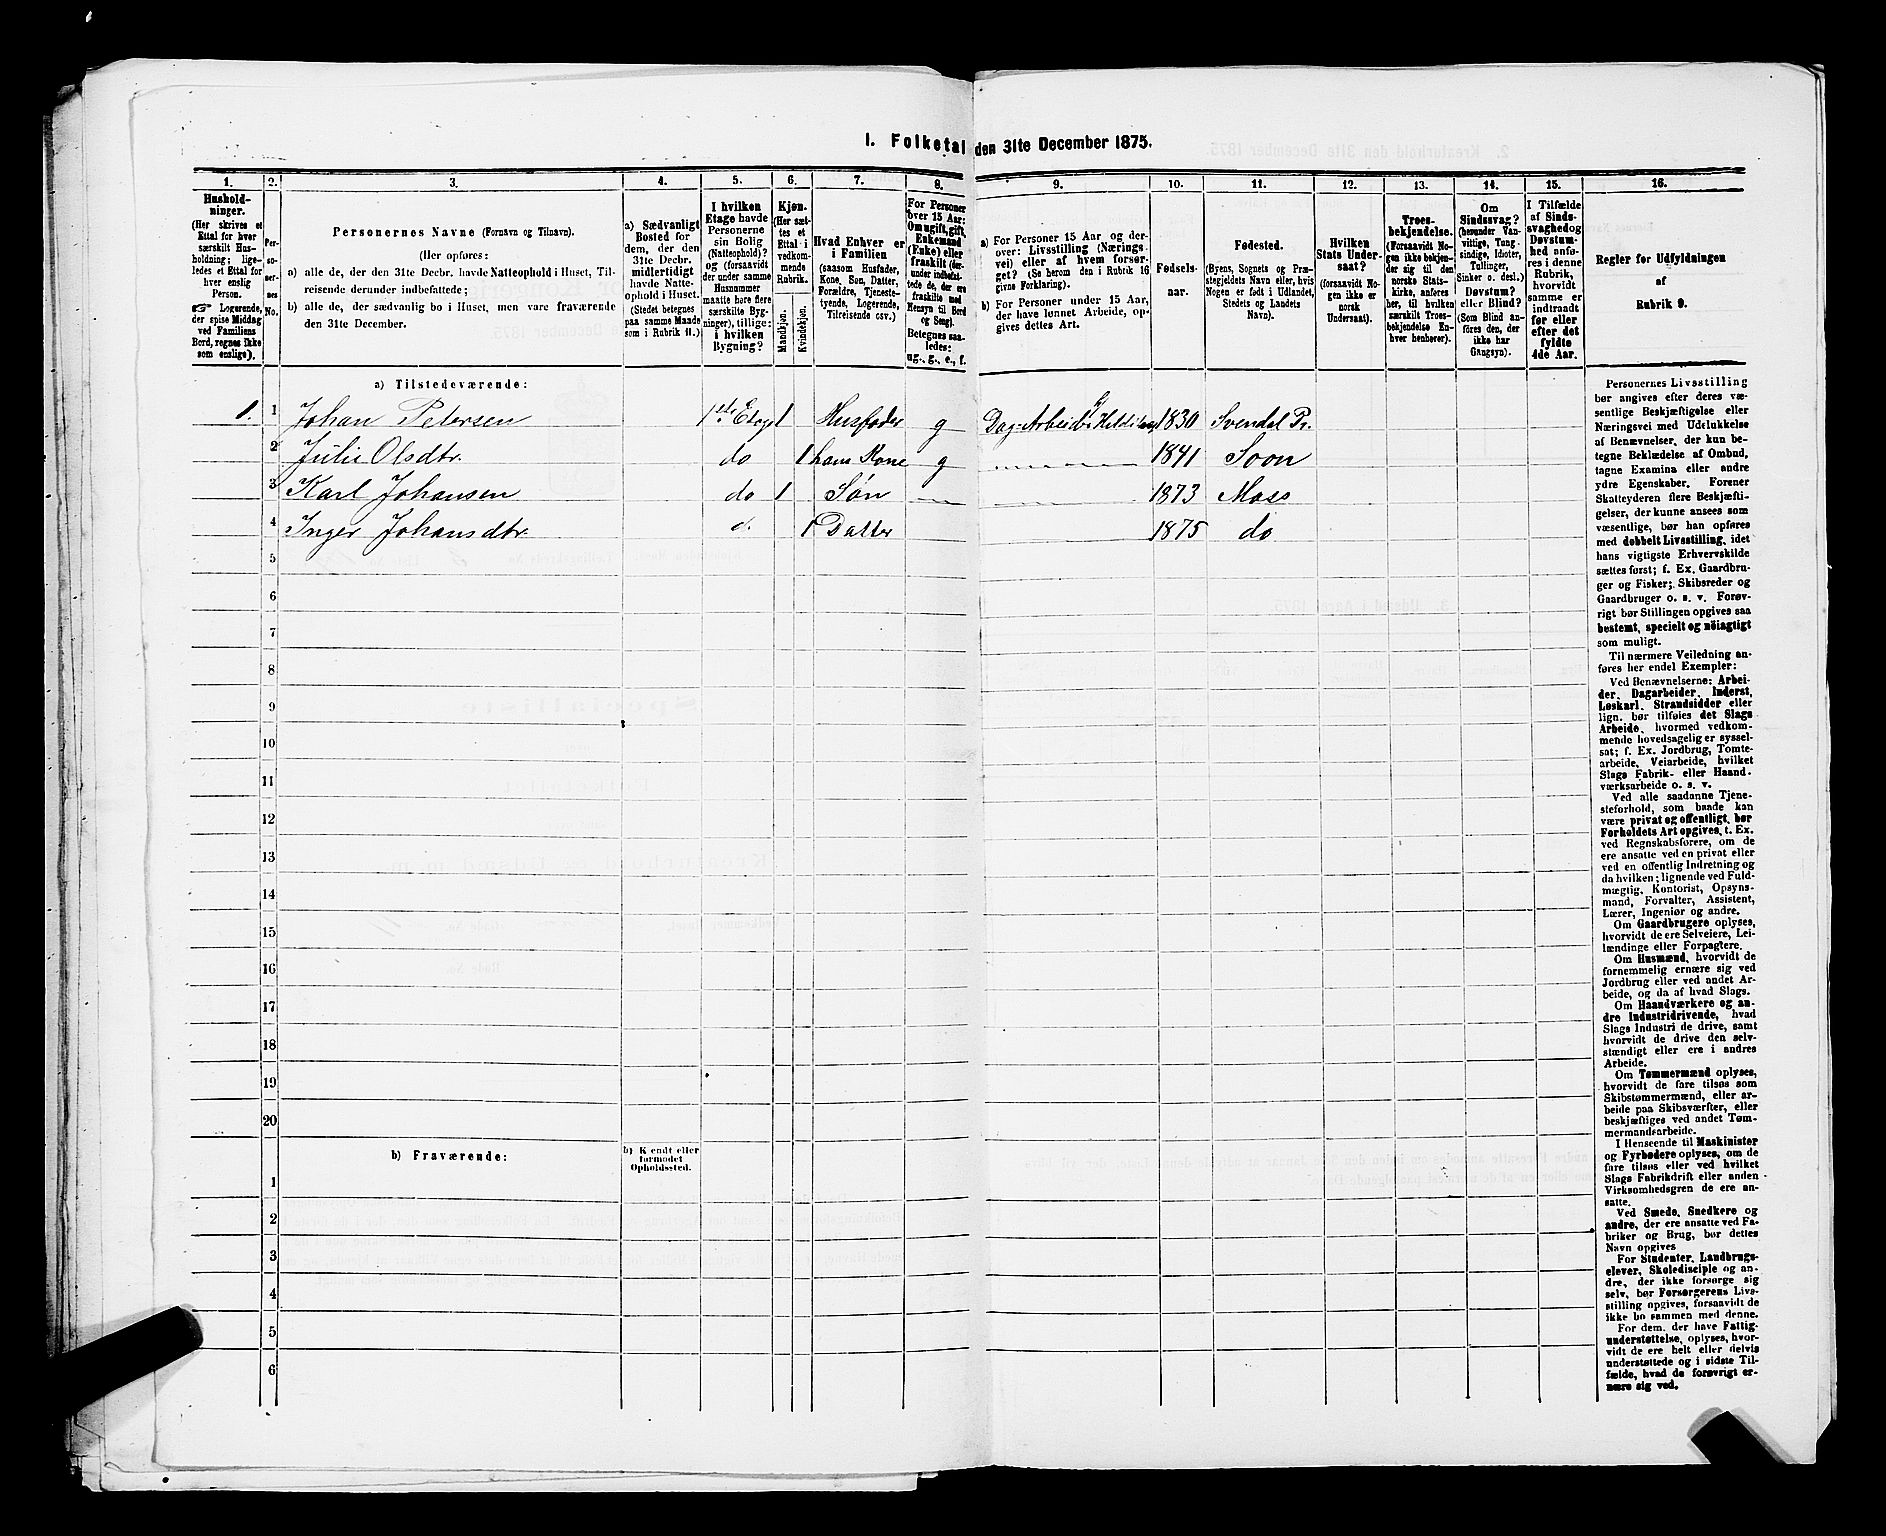 1. Folketal den 31te December 1875.
1. 2. 3. 4. 5. 6. 7. 8. 9. 10. 11. 12. 13. 14. 15. 16.
Hushold-
ninger.
(Her skrives et
Ettal for hver
særskilt Hus-
holdning; lige-
ledes et Ettal for
hver enslig
Person.
☞ Logerende,
der spise Middag
ved Familiens
Bord, regnes ikke
som enslige).
Per-
so-
ner-
nes
No.
Personernes Navne (Fornavn og Tilnavn).
(Her opføres:
a) alle de, der den 31te Decbr. havde Natteophold i Huset, Til-
reisende derunder indbefattede;
b) alle de, der sædvanlig bo i Huset, men vare fraværende
den 31te December.
a) Sædvanligt
Bosted for
dem, der den
31te Decbr.
midlertidigt
havde Natte-
ophold i Huset.
(Stedet betegnes
paa samme Maade
som i Rubrik 11.)
I hvilken
Etage havde
Personerne
sin Bolig
(Natteophold)?
og (forsaavidt
der under samme
Husnummer
maatte høre flere
særskilte Byg-
ninger), tillige:
i hvilken
Bygning?
Kjøn.
(Her sæt-
tes et
Ettal i
vedkom-
mende
Rubrik.
Mandkjøn.
Kvindekjøn.
Hvad Enhver er
i Familien
(saasom Husfader,
Kone, Søn, Datter,
Forældre, Tjeneste-
tyende, Logerende,
Tilreisende csv.)
For Personer
over 15 Aar:
Om ugift, gift,
Enkemand
(Enke) eller
fraskilt (der-
under indbefat-
tede de, der ere
fraskilte med
Hensyn til Bord
og Seng).
Betegnes saa-
ledes:
ug., g., e., f.
a) For Personer 15 Aar og der-
over: Livsstilling (Nærings-
vei) eller af hvem forsør-
get? (Se herom den i Rubrik 16
givne Forklaring).
b) For Personer under 15 Aar,
der have lønnet Arbeide, op-
gives dettes Art.
Fødsels-
aar.
Fødested.
(Byens, Sognets og Præ-
stegjeldets Navn eller, hvis
Nogen er født i Udlandet,
Stedets og Landets
Navn).
Hvilken
Stats Under-
saat?
(forsaavidt No-
gen ikke er
norsk
Undersaat).
Troes-
bekjendelse.
(Forsaavidt No-
gen ikke bekjen-
der sig til den
norske Stats-
kirke, anføres
her, til hvilken
særskilt Troes-
bekjendelse En-
hver henhører).
Om
Sindssvag?
(herunder Van-
vittige, Tung-
sindige, Idioter,
Tullinger,
Sinker o. desl.)
Døvstum?
eller Blind?
(Som Blind an-
føres den, der
ikke har
Gangsyn).
I Tilfælde
af Sinds-
svaghed og
Døvstum-
hed anfø-
res i denne
Rubrik,
hvorvidt
samme er
indtraadt
før eller
efter det
fyldte
4de Aar.
Regler for Udfyldningen
af
Rubrik 9.
a) Tilstedeværende:
1. 1 Johan Petersen 1ste Etage 1 Husfader g 1830 Svendal Pr.
2 Julie Olsdtr. do 1 hans Kone g 1841 Soon
3 Karl Johansen do 1 Søn 1873 Moss
4 Inger Johansdtr. d. 1 Datter 1875 do
5
6
7
8
9
10
11
12
13
14
15
16
17
18
19
20
b) Fraværende:
b) Kjendt eller
formodet
Opholdssted.
1
2
3
4
5
6
Personernes Livsstilling
bør angives efter deres væ-
sentlige Beskjæftigelse eller
Næringsvei med Udelukkelse
af Benævnelser, der kun be-
tegne Beklædelse af Ombud,
tagne Examina eller andre
ydre Egenskaber. Forener
Skatteyderen flere Beskjæfti-
gelser, der kunne ansees som
væsentlige, bør han opføres
med dobbelt Livsstilling, idet
hans vigtigste Erhvervskilde
sættes først; f. Ex. Gaardbru-
ger og Fisker; Skibsreder og
Gaardbruger o. s. v. Forøv-
rigt bør Stillingen opgives saa
bestemt, specielt og nøiagtigt
som muligt.
Til nærmere Veiledning an-
føres her endel Exempler:
Ved Benævnelserne: Arbei-
der, Dagarbeider, Inderst,
Løskarl, Strandsidder eller
lign. bør tilføies det Slags
Arbeide, hvormed vedkom-
mende hovedsagelig er syssel-
sat; f. Ex. Jordbrug, Tomte-
arbeide, Veiarbeide, hvilket
Slags Fabrik- eller Haand-
værksarbeide o. s. v.
Ved alle saadanne Tjene-
steforhold, som baade kan
være privat og offentligt, bør
Forholdets Art opgives, t. Ex.
ved Regnskabsførere, om de
ere ansatte ved en privat eller
ved en offentlig Indretning og
da hvilken; lignende ved Fuld-
mægtig, Kontorist, Opsyns-
mand, Forvalter, Assistent,
Lærer, Ingeniør og andre.
Om Gaardbrugere oplyses,
hvorvidt de ere Selveiere, Lei-
lændinge eller Forpagtere.
Om Husmænd, hvorvidt de
fornemmelig ernære sig ved
Jordbrug eller ved andet Ar-
beide, og da af hvad Slags.
Om Haandværkere og an-
dre Industridrivende, hvad
Slags Industri de drive, samt
hvorvidt de drive den selv-
stændigt eller ere i andres
Arbeide.
Om Tømmermænd oplyses,
hvorvidt de fare tilsøs som
Skibstømmermænd, eller ar-
beide paa Skibsværfter, eller
beskjæftiges ved andet Tøm-
mermandsarbeide.
I Henseende til Maskinister
og Fyrbødere oplyses, om de
fare tilsøs eller ved hvilket
Slags Fabrikdrift eller anden
Virksomhedsgren de ere an-
satte.
Ved Smede, Snedkere og
andre, der ere ansatte ved Fa-
briker og Brug, bør dettes
Navn opgives
For Studenter, Landbrugs-
elever, Skoledisciple og an-
dre, der ikke forsørge sig
selv, bør Forsørgerens Livs-
stilling opgives, forsaavidt de
ikke bo sammen med denne.
For dem, der have Fattig-
understøttelse, oplyses, hvor-
vidt de ere helt eller delvis
understøttede og i sidste Til-
fælde, hvad de forøvrigt er-
nære sig ved.